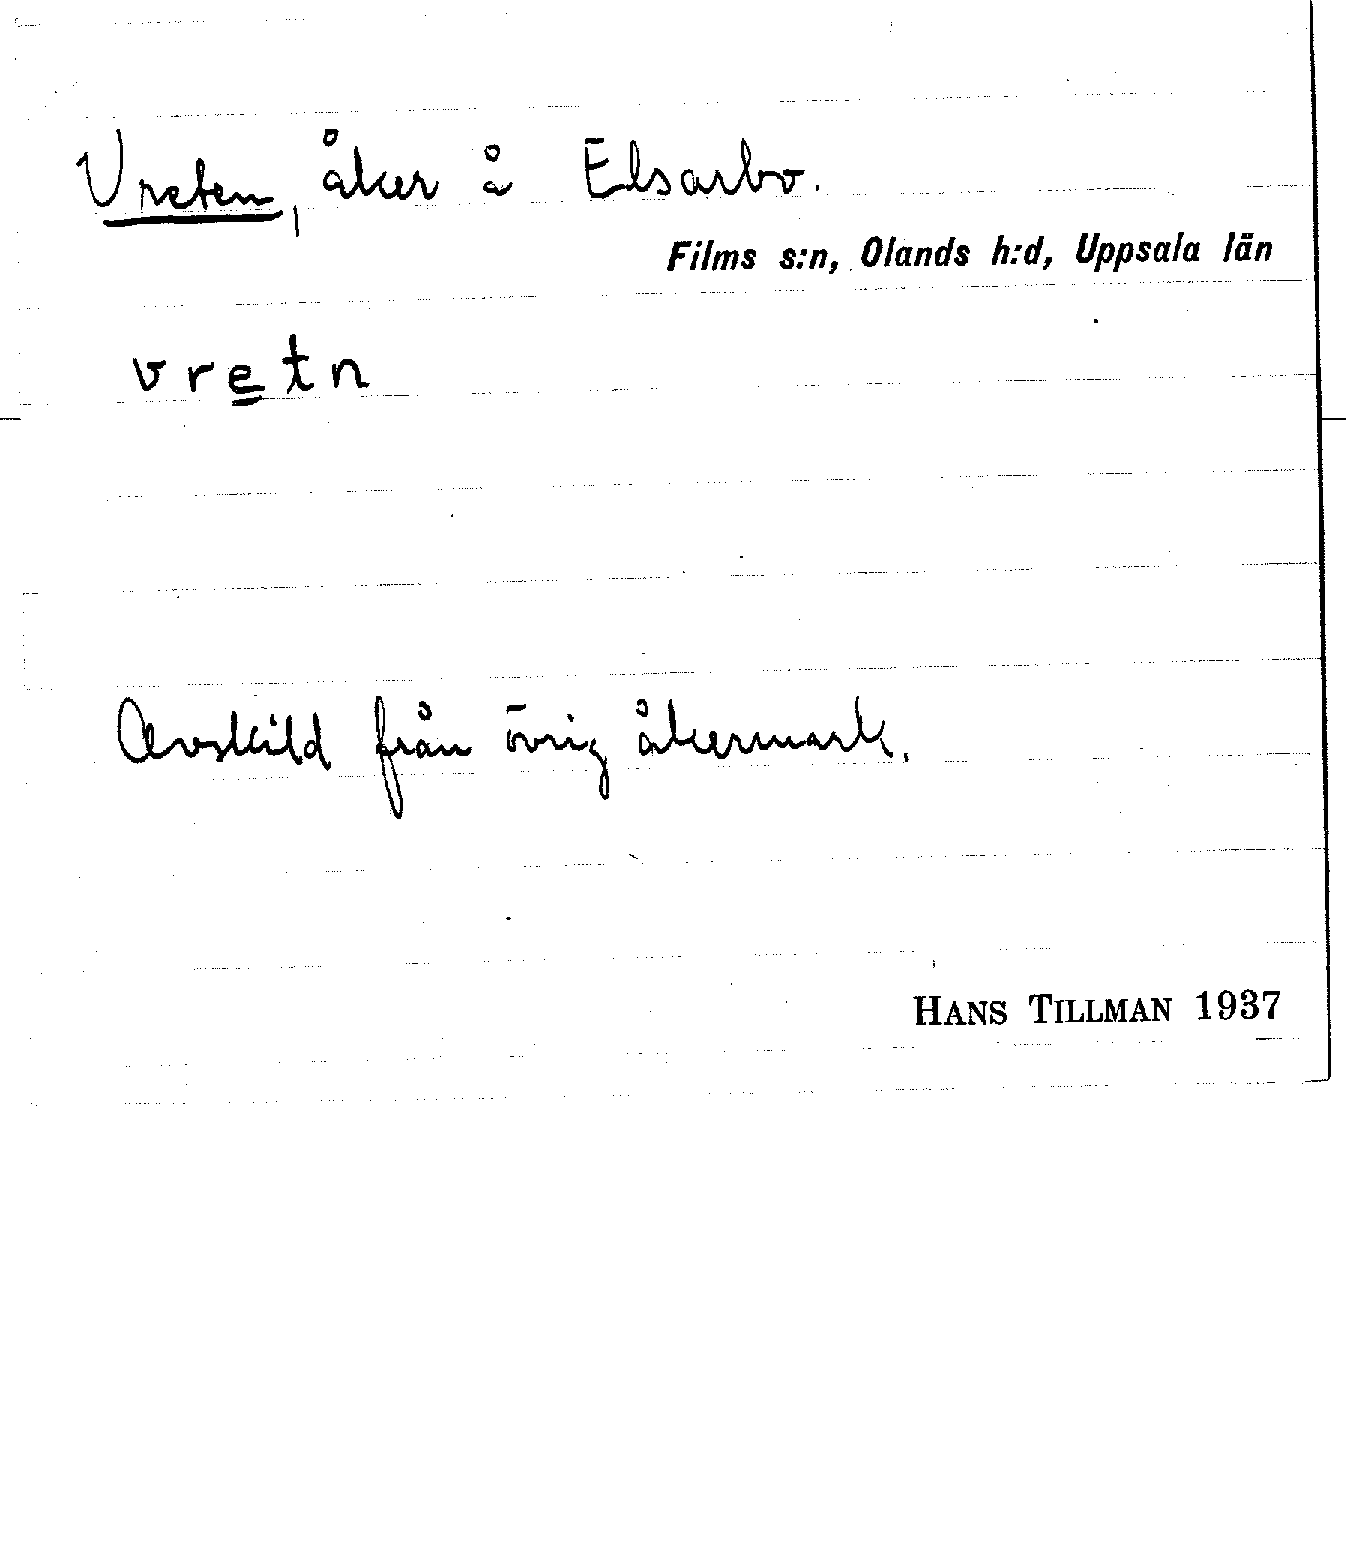 Vreten, åker å Elsarbo.
Films s:n, Olands h:d, Uppsala län
vretn
Avskild från övrig åkermark.
HANS TILLMAN 1937